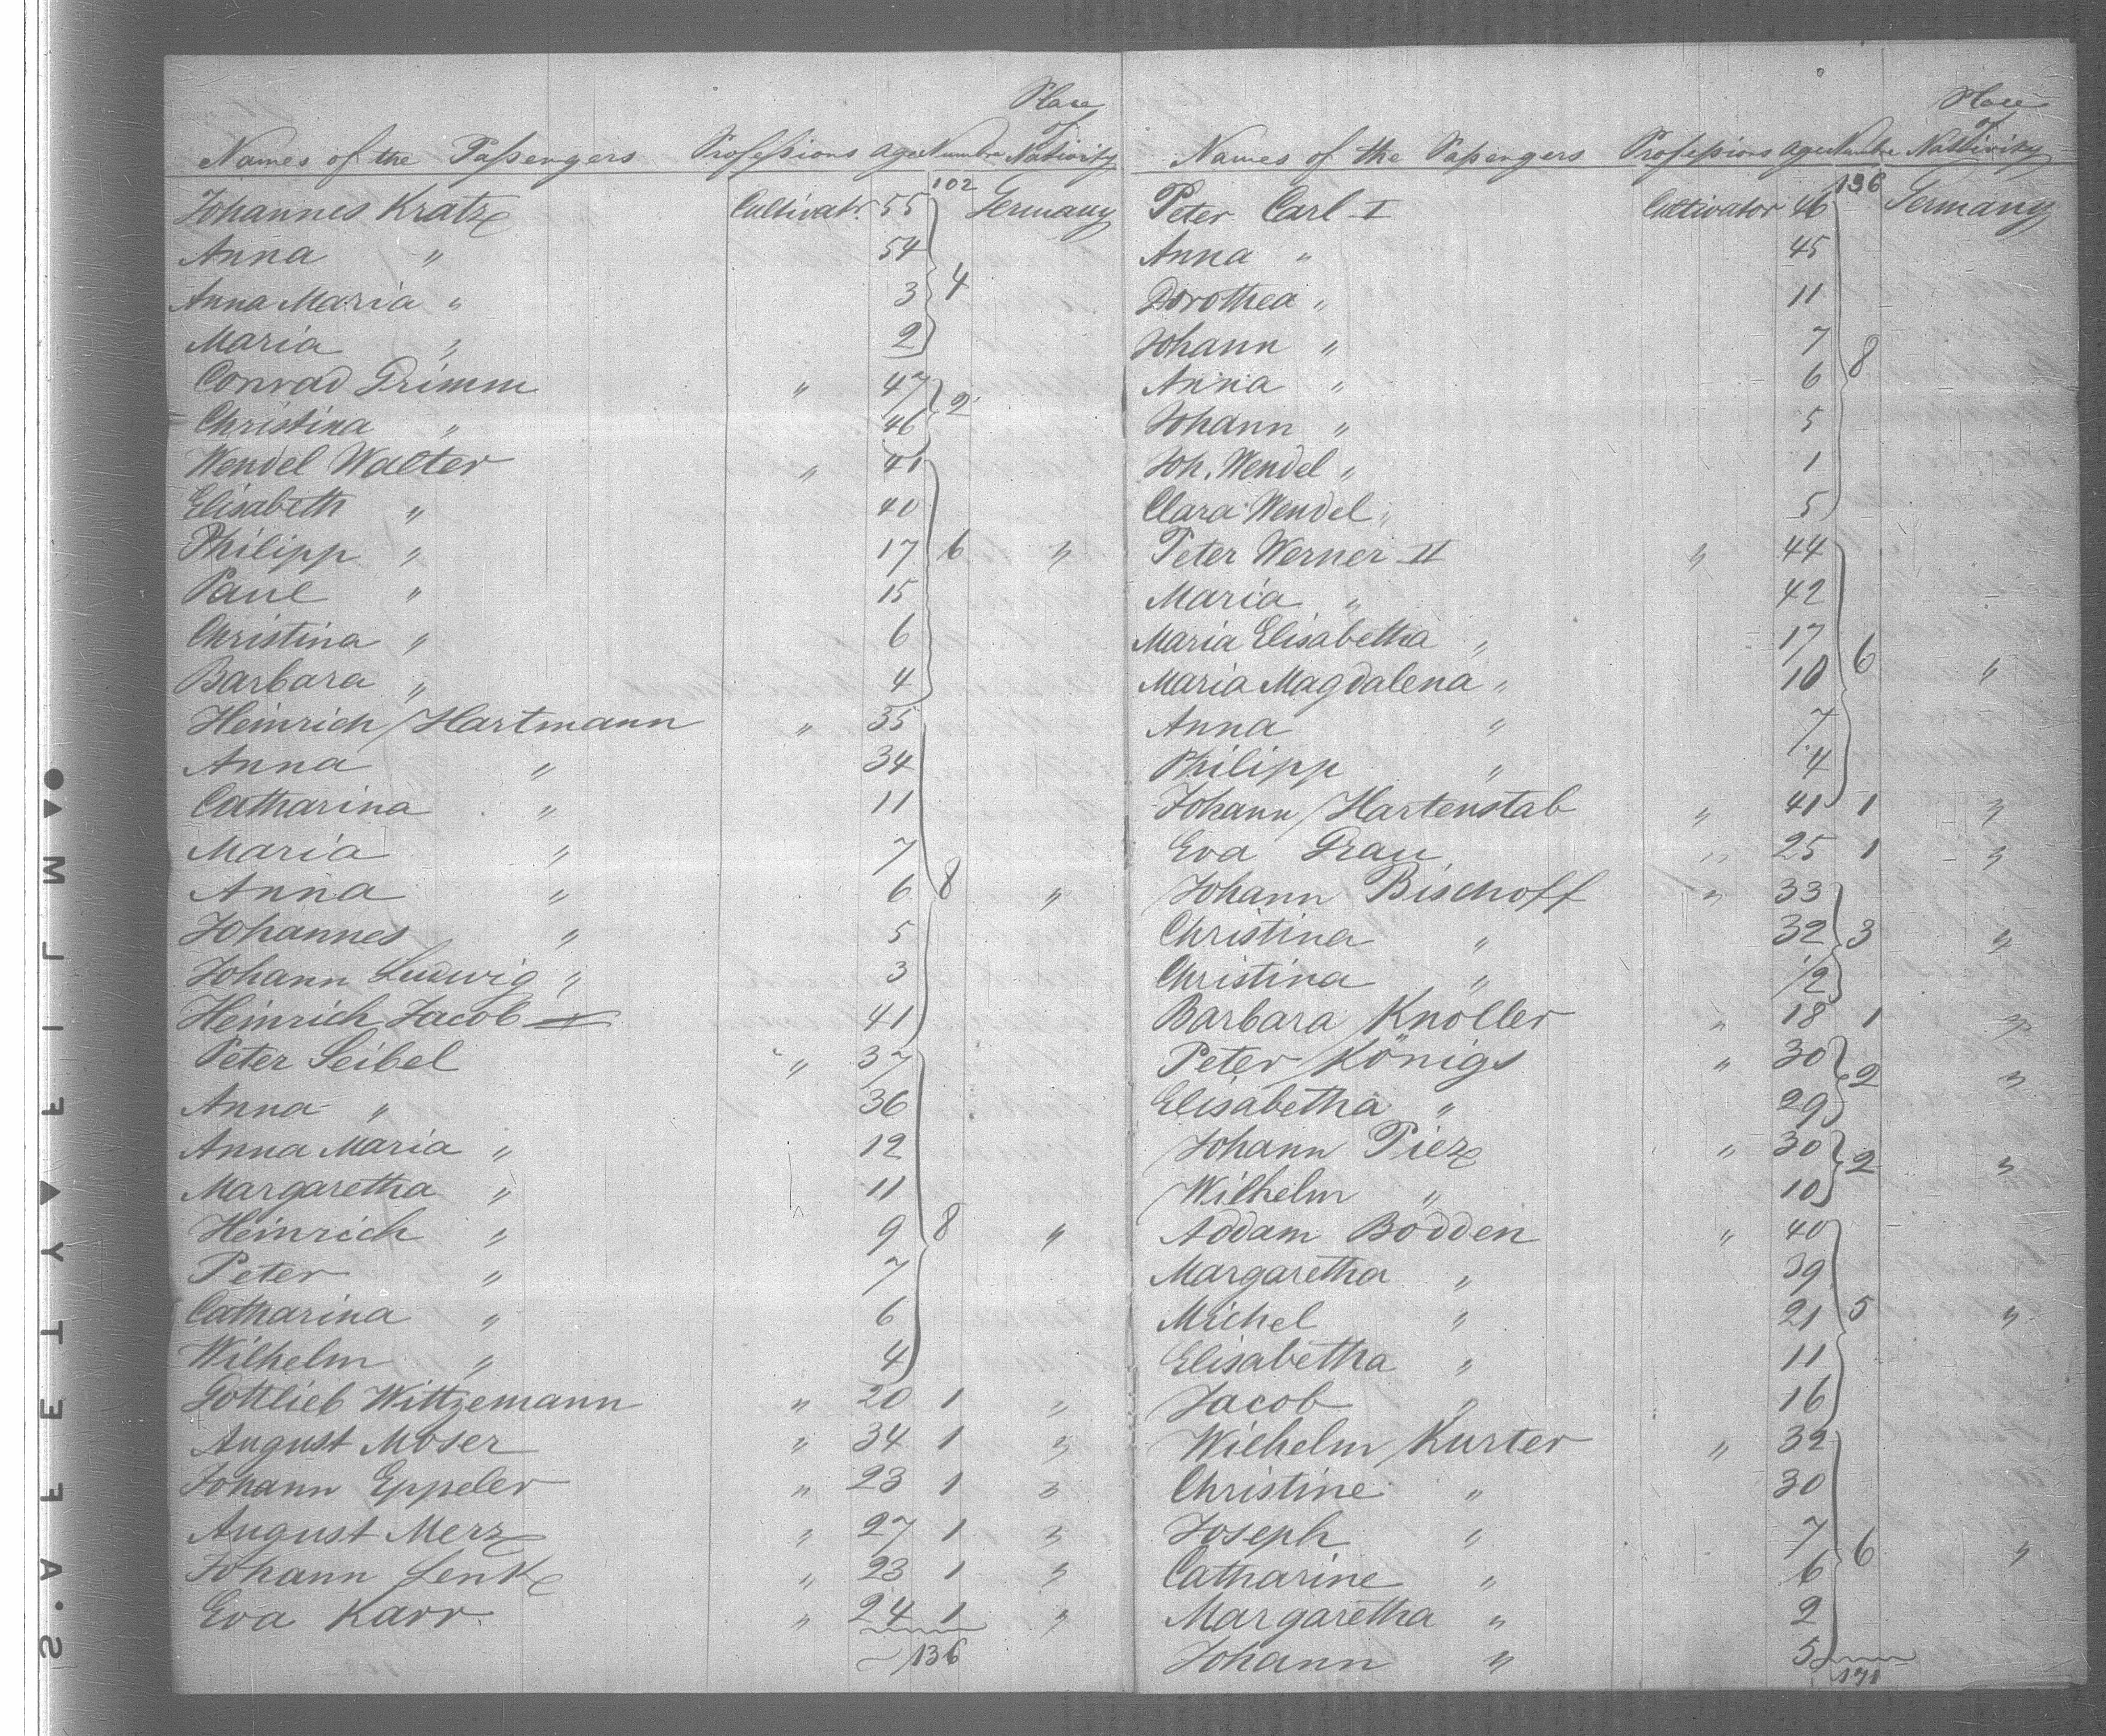 Place
of
Names of the Passengers Professions Age Numbre Nativity
102
Johannes Kratz Cultivatr. 55 Germany
Anna " 54
4
Anna Maria " 3
Maria " 2
Conrad Grimm " 47
2
Christina " 46
Wendel Walter " 41
Elisabeth " 40
Philipp " 17 6 "
Paul " 15
Christina " 6
Barbara " 4
Heinrich Hartmann " 35
Anna " 34
Catharina " 11
Maria " 7
Anna " 6 8 "
Johannes " 5
Johann Ludwig " 3
Heinrich Jacob 41
Peter Seibel " 37
Anna " 36
Anna Maria " 12
Margaretha " 11
Heinrich " 9 8 "
Peter " 7
Catharina " 6
Wilhelm " 4
Gottlieb Wittzemann " 20 1 "
August Moser " 34 1 "
Johann Eppeler " 23 1 "
August Merz " 27 1 "
Johann Lenk " 23 1 "
Eva Karr " 24 1 "
136
Place
of
Names of the Sapengers Professions Age Numbre Nativity
136
Peter Carl I Cultivator 46 Germany
Anna " 45
Dorothea " 11
Johann " 7
8
Anna " 6
Johann " 5
Joh. Wendel " 1
Clara Wendel " 5
Peter Werner II " 44
Maria " 42
Maria Elisabetha " 17
6
Maria Magdalena " 10 "
Anna " 7
Philipp " 4
Johann Hartenstab " 41 1 "
Eva Grau " 25 1 "
Johann Bischoff " 33
Christina " 32 3 "
Christina " 1/2
Barbara Knoller " 18 1 "
Peter Königs " 30
2 "
Elisabetha " 29
Johann Piez " 30
2 "
Wilhelm " 10
Addam Bodden " 40
Margaretha " 39
Michel " 21 5 "
Elisabetha " 11
Jacob " 16
Wilhelm Kurter " 32
Christine " 30
Joseph " 7
6 "
Catharine " 6
Margaretha " 2
Johann " 5
171
S.AFETY▲FILM▲●